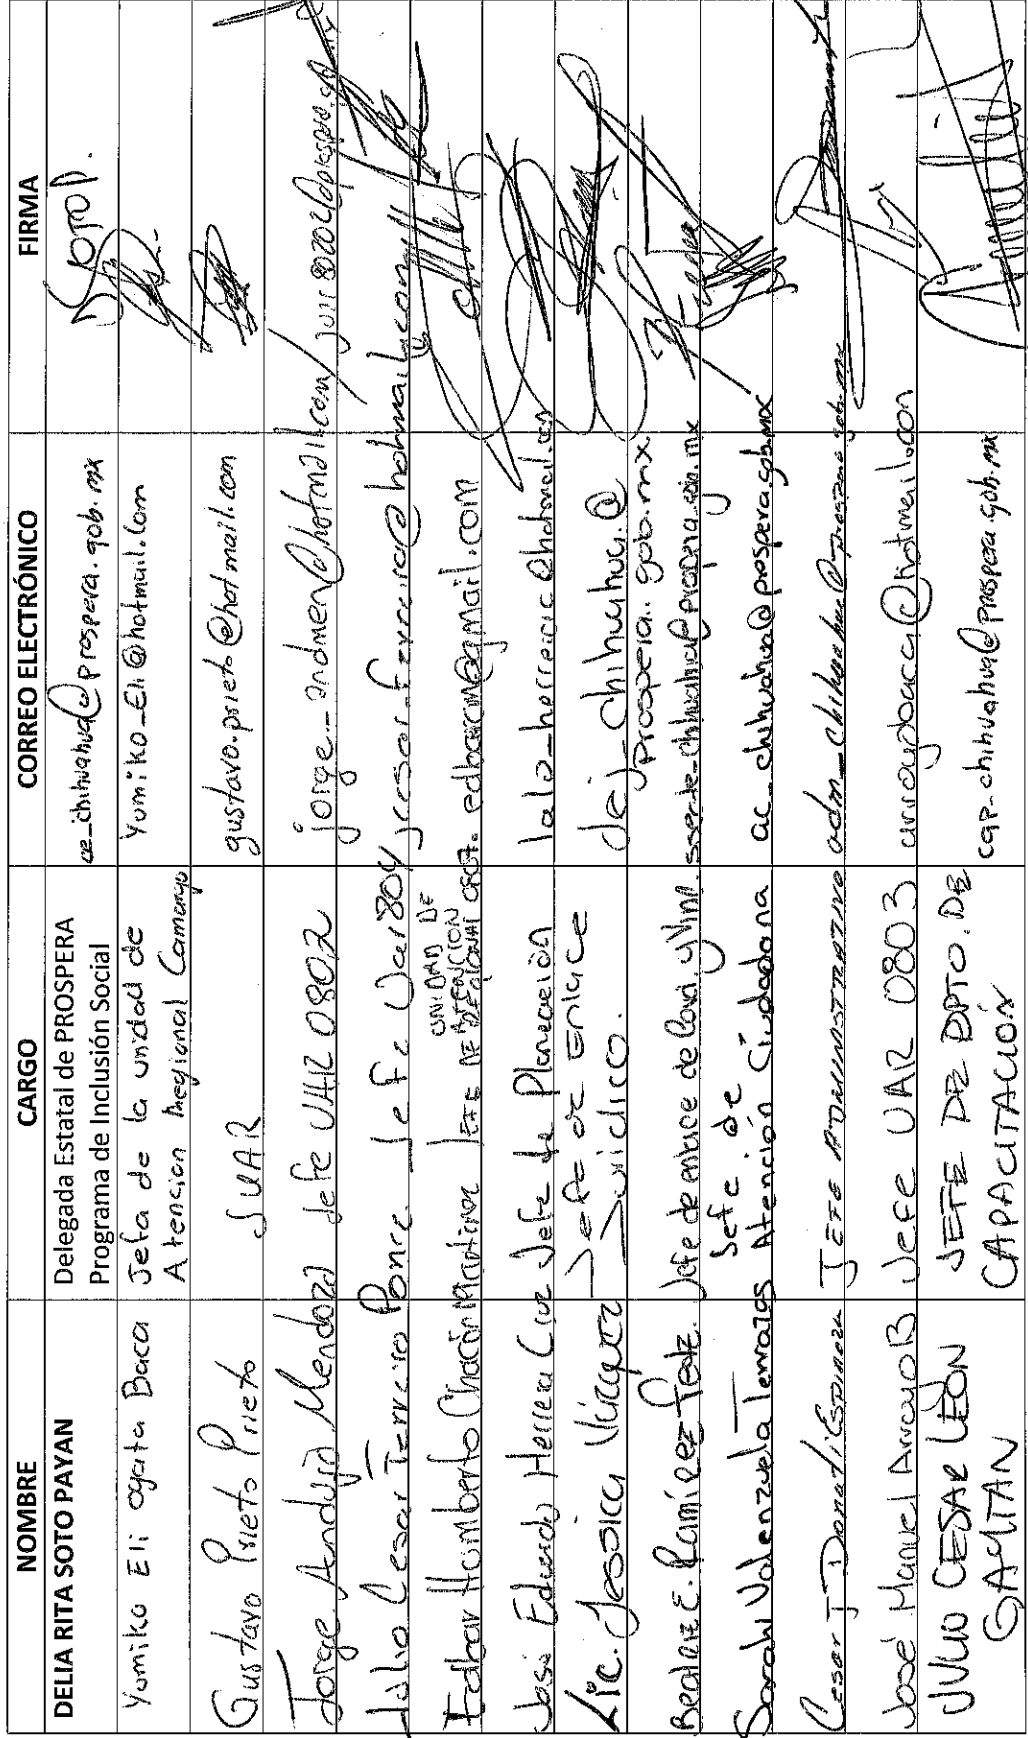 NOMBRE CARGO CORREO ELECTRÓNICO FIRMA
DELIA RITA SOTO PAYAN Delegada Estatal de PROSPERA
Programa de Inclusión Social ce_chihuahua@prospera.gob.mx
Yumiko Eli Ogata Baca Jefa de la unidad de
Atencion Regional Camargo Yumiko_Eli@hotmail.com
Gustavo Prieto Prieto JUAR gustavo.prieto@hotmail.com
Jorge Andujo Mendoza Jefe UAR 0802 jorge_andmen@hotmail.com/
Julio Cesar Terreiro Ponce Jefe Uar 0804
Edbar Humberto Chacón Martinez JEFE DE UNIDAD DE
ATENCION
REGIONAL edbarcm@gmail.com
José Eduardo Herrera Cruz Jefe de Planeación lalo_herreric@hotmail.com
Lic. Jessica Vázquez Jefe de Enlace
Jurídico. dej_chihuhua@
prospera.gob.mx
Beatriz E. Ramírez Jefe de enlace de
Sarahi Valenzuela Terrazas Jefe de
Atención Ciudadana ac_chihuahua@prospera.gob.mx
Cesar I Donati Espinoza JEFE ADMINISTRATIVO adm_chihuahua@prospera.gob.mx
José Manuel Arroyo B Jefe UAR 0803 arroyobaca@hotmail.com
JULIO CESAR LEÓN
GAYTAN JEFE DE DPTO. DE
CAPACITACIÓN cap_chihuahua@prospera.gob.mx